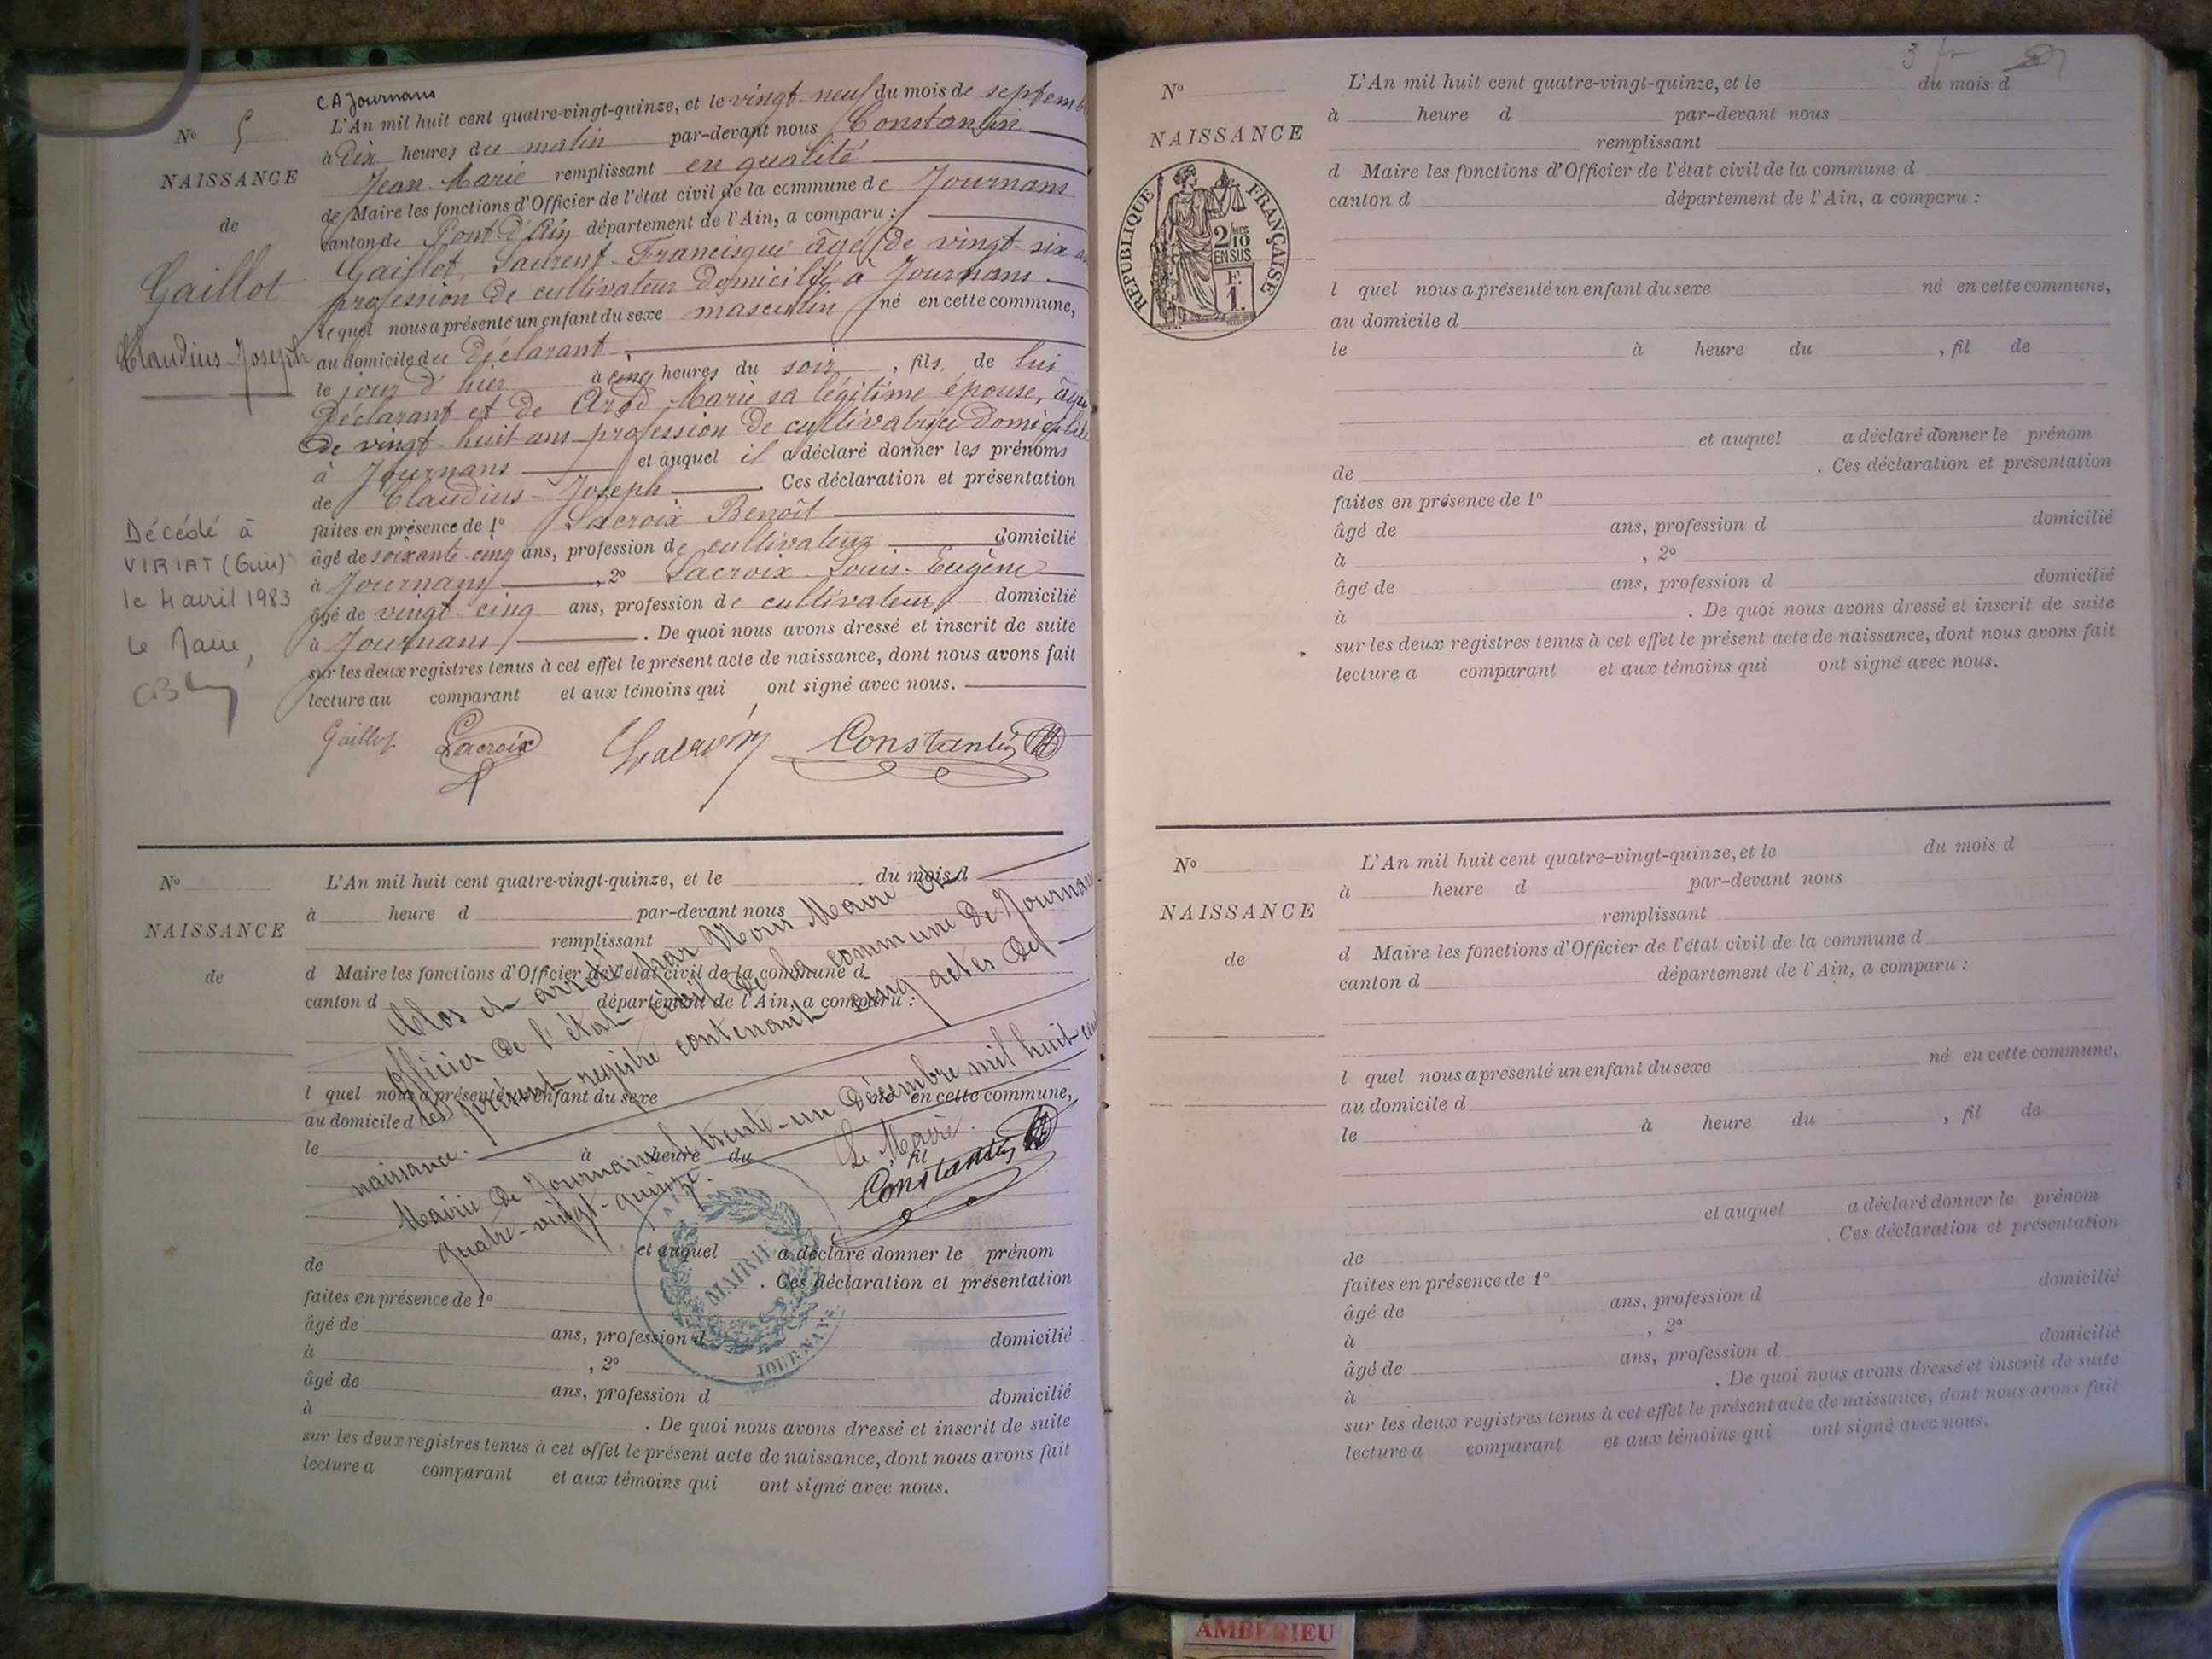 CA Journans
N° 5
NAISSANCE
de
Gaillot
Claudius-Joseph
L'An mil huit cent quatre-vingt-quinze, et le vingt-neuf du mois de septemb
à Dix heures du matin par-devant nous Constantin
Jean-Marie remplissant en qualité
de Maire les fonctions d'Officier de l'état civil de la commune de Journans
canton de Pont d'Ain département de l'Ain, a comparu :
Gaillot, Laurent-Francisque âgé de vingt-six
profession de cultivateur domicilié à Journans
lequel nous a présenté un enfant du sexe masculin né en cette commune,
au domicile du Déclarant
le jour d'hier à cinq heures du soir, fils, de lui
Déclarant et de Marie sa légitime épouse, âgée
de vingt-huit ans profession de cultivatrice Domiciliée
à Journans et auquel il a déclaré donner les prénoms
de Claudius-Joseph. Ces déclaration et présentation
faites en présence de 1° Lacroix Benoît
âgé de soixante-cinq ans, profession de cultivateur domicilié
à Journans, 2° Lacroix Louis-Eugène
âgé de vingt-cinq ans, profession de cultivateur domicilié
à Journans. De quoi nous avons dressé et inscrit de suite
sur les deux registres tenus à cet effet le présent acte de naissance, dont nous avons fait
lecture au comparant et aux témoins qui ont signé avec nous.
Décédé à
VIRIAT (Ain)
le 4 avril 1983
Le Maire,
Gaillot Lacroix Lacroix Constantin
N°
NAISSANCE
de
L'An mil huit cent quatre-vingt-quinze, et le du mois d
à heure d par-devant nous
remplissant
d Maire les fonctions d'Officier de l'état civil de la commune d
canton d département de l'Ain, a comparu :
l quel nous a présenté un enfant du sexe né en cette commune,
au domicile d
le à heure du , fil
et auquel a déclaré donner le prénom
de . Ces déclaration et présentation
faites en présence de 1°
âgé de ans, profession d domicilié
à , 2°
âgé de ans, profession d domicilié
à . De quoi nous avons dressé et inscrit de suite
sur les deux registres tenus à cet effet le présent acte de naissance, dont nous avons fait
lecture a comparant et aux témoins qui ont signé avec nous.
Clos et arrêté par Nous Maire et
Officier de l'état civil de la commune de Journans
le présent registre contenant cinq actes de
naissance.
Mairie de Journans le trente-un Décembre mil huit cent
quatre-vingt-quinze.
Le Maire.
Constantin
MAIRIE
JOURNANS
AIN
3 fr
N°
NAISSANCE
REPUBLIQUE FRANÇAISE
2/10
EN SUS
F.
1.
L'An mil huit cent quatre-vingt-quinze, et le du mois d
à heure d par-devant nous
remplissant
d Maire les fonctions d'Officier de l'état civil de la commune d
canton d département de l'Ain, a comparu :
l quel nous a présenté un enfant du sexe né en cette commune,
au domicile d
le à heure du , fil de
et auquel a déclaré donner le prénom
de . Ces déclaration et présentation
faites en présence de 1°
âgé de ans, profession d domicilié
à , 2°
âgé de ans, profession d domicilié
à . De quoi nous avons dressé et inscrit de suite
sur les deux registres tenus à cet effet le présent acte de naissance, dont nous avons fait
lecture a comparant et aux témoins qui ont signé avec nous.
N°
NAISSANCE
de
L'An mil huit cent quatre-vingt-quinze, et le du mois d
à heure d par-devant nous
remplissant
d Maire les fonctions d'Officier de l'état civil de la commune d
canton d département de l'Ain, a comparu :
l quel nous a présenté un enfant du sexe né en cette commune,
au domicile d
le à heure du , fil de
et auquel a déclaré donner le prénom
de . Ces déclaration et présentation
faites en présence de 1°
âgé de ans, profession d domicilié
à , 2°
âgé de ans, profession d domicilié
à . De quoi nous avons dressé et inscrit de suite
sur les deux registres tenus à cet effet le présent acte de naissance, dont nous avons fait
lecture a comparant et aux témoins qui ont signé avec nous.
AMBERIEU